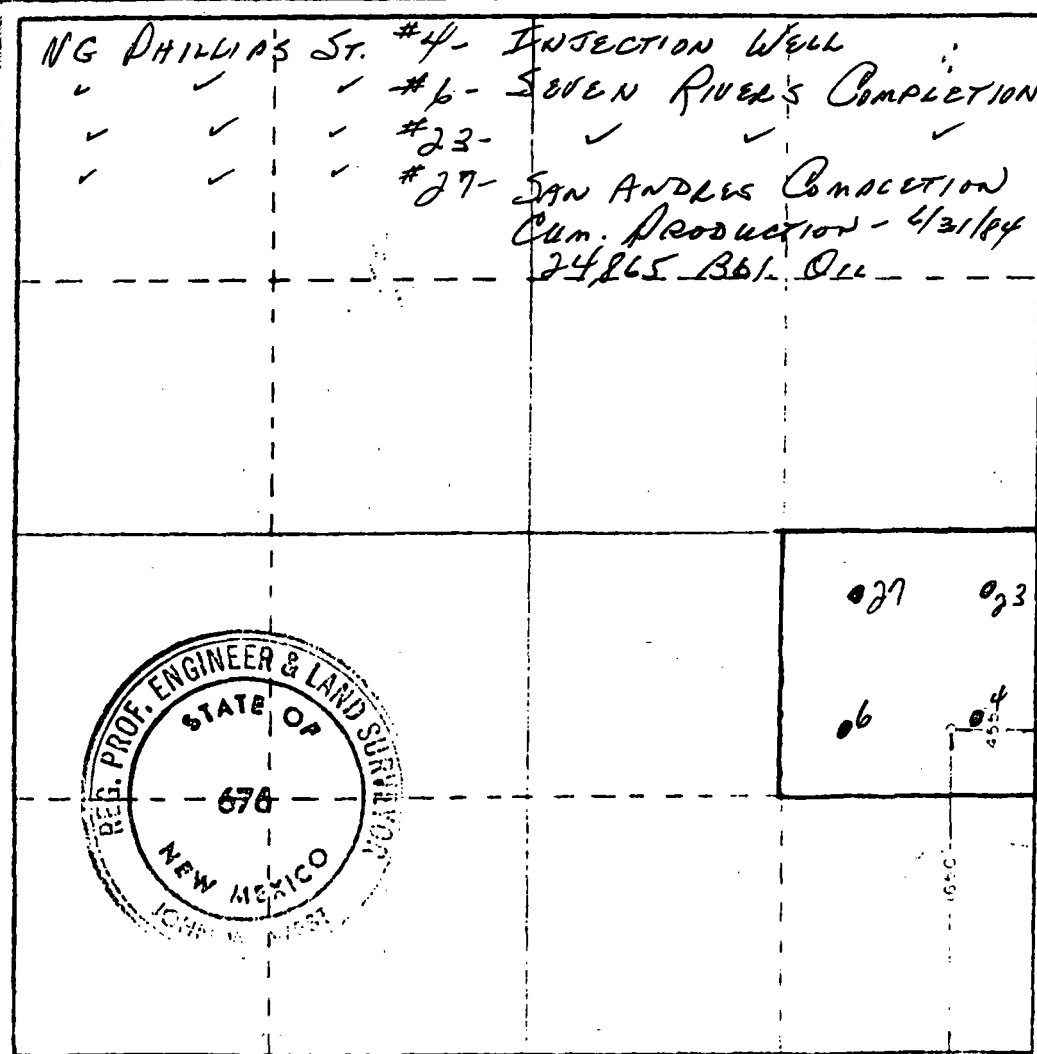 NG PHILLIPS ST. #4- INJECTION WELL
✓ ✓ ✓ #6- SEVEN RIVERS COMPLETION
✓ ✓ ✓ #23- ✓ ✓ ✓
✓ ✓ ✓ #27- SAN ANDRES COMPLETION
CUM. PRODUCTION -
24,865 Bbl. OIL
27 23
6 4
455
1650
REG. PROF. ENGINEER & LAND SURVEYOR
STATE OF
676
NEW MEXICO
JOHN W. WEST